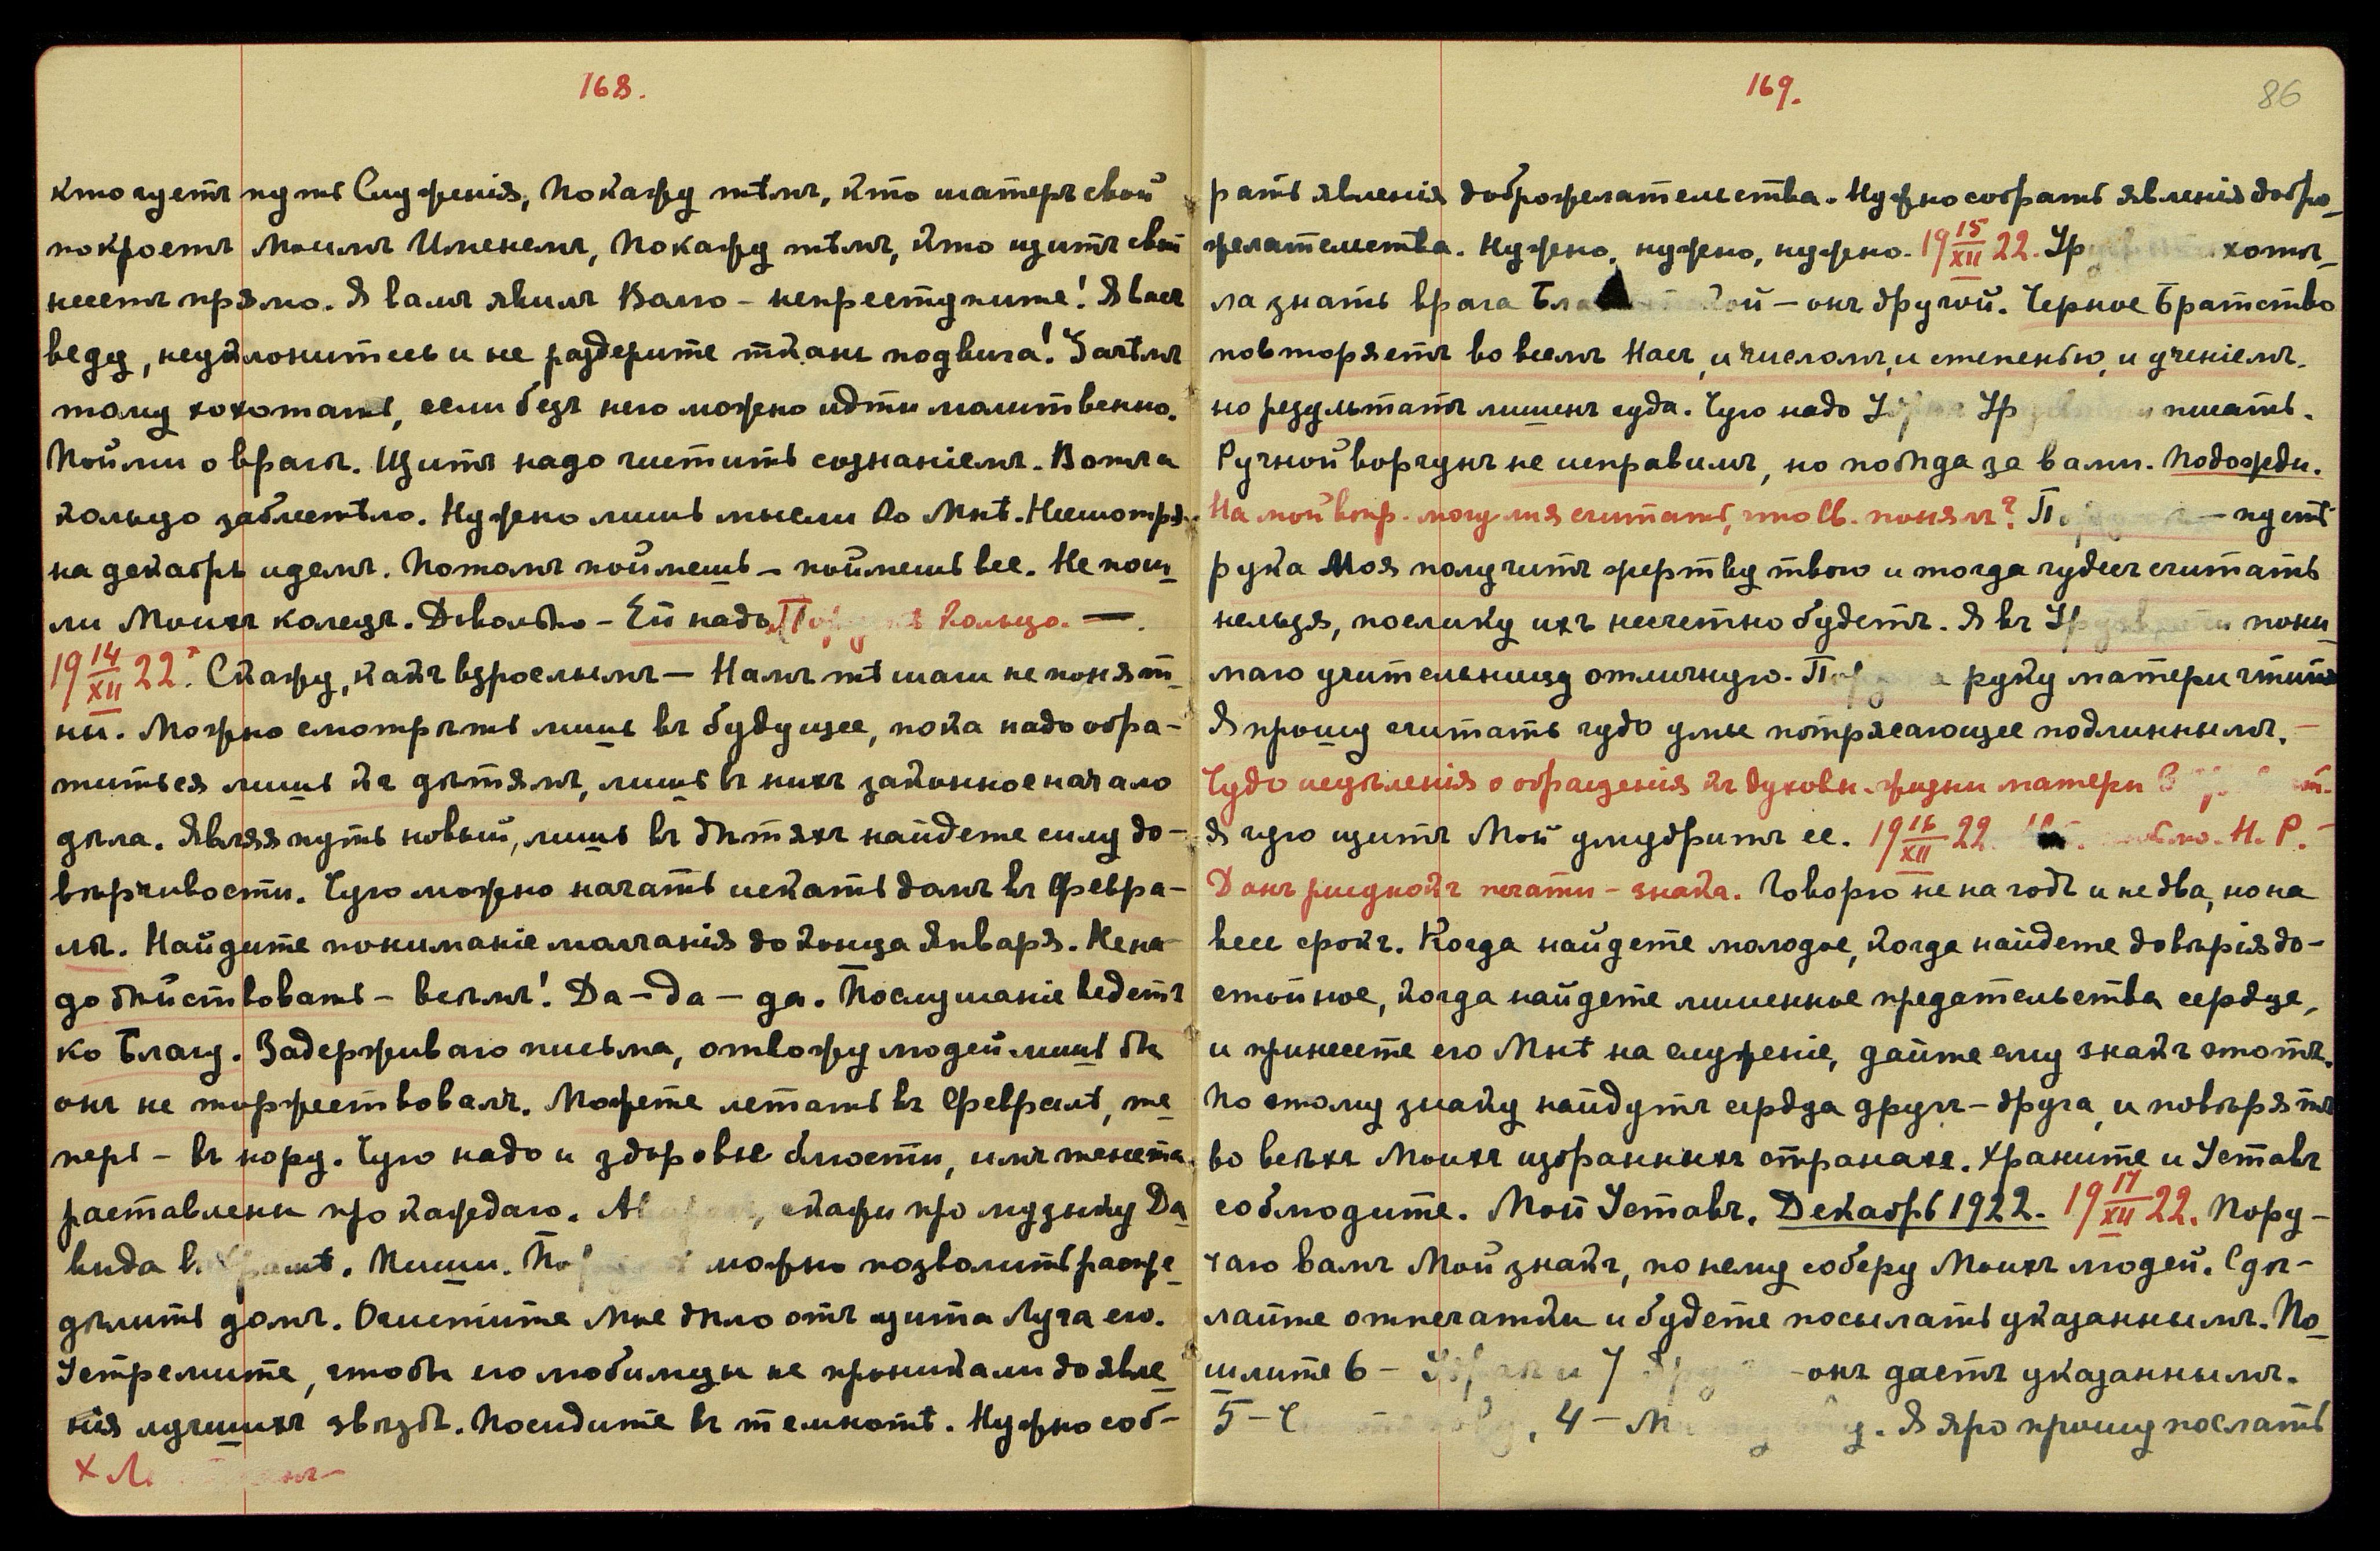 168.
кто чуетъ путь Служенія, Покажу тѣмъ, кто шатеръ свой
покроетъ Моимъ Именемъ, Покажу тѣмъ, кто щитъ свой
несетъ прямо. Я вамъ явилъ Волю – непреступите! Я васъ
веду, неуклонитесь и не раздерите ткань подвига! Зачѣмъ
тому хохотать, если безъ него можно идти молитвенно.
Пойми о врагѣ. Щитъ надо чистить сознаніемъ. Волга
кольцо заблестѣло. Нужно лишь мысли ко Мнѣ. Несмотря
на декабрь идемъ. Потомъ поймешь – поймешь все. Не пош-
ли Моихъ колецъ. Довольно – Ей надо кольцо. —.
19 14/XII 22. Скажу, какъ взрослымъ – Намъ тѣ шаги не понят-
ны. Можно смотрѣть лишь въ будущее, пока надо обра-
титься лишь къ дѣтямъ, лишь въ нихъ законное начало
дѣла. Являя путь новый, лишь въ дѣтяхъ найдете силу до-
вѣрчивости. Чую можно начать искать домъ въ Февра-
лѣ. Найдите пониманіе молчанія до конца Января. Не на-
до дѣйствовать – всѣмъ! Да – да – да. Послушаніе ведетъ
ко Благу. Задерживаю письма, отвожу людей лишь бы
онъ не торжествовалъ. Можете летать въ Февралѣ, те-
перь – въ нору. Чую надо и здоровье блюсти, имъ тенета
раставлены про каждаго. скажи про музыку Да-
вида Пиши. можно позволить распре-
дѣлить домъ. Очистите Мое дѣло отъ щита Луча его.
Устремите, чтобы его любимцы не проникали до явле-
нія лучшихъ звѣздъ. Посидите въ темнотѣ. Нужно соб-
169.
86
рать явленія доброжелательства. Нужно собрать явленія добро-
желательства. Нужно, нужно, нужно. 19 15/XII 22. хотѣ-
ла знать врага – онъ другой. Черное Братство
повторяетъ во всемъ Насъ, и числомъ, и степенью, и ученіемъ,
но результатъ лишенъ чуда. Чую надо писать.
Ручной ворчунъ не исправимъ, но побѣда за вами. Подожди.
На мой вопр. могу ли я считать, что Св. понялъ? – пусть
рука Моя получитъ жертву твою и тогда чудесъ считать
нельзя, поелику ихъ несчетно будетъ. Я въ пони-
маю учительницу отличную. руку матери чтитъ
Я прошу считать чудо умы потрясающее подлиннымъ. –
Чудо исцѣленія о обращенія къ духовн. жизни матери
Я чую щитъ Мой умудритъ ее. 19 16/XII 22. Н. Р. –
Данъ рисунокъ печати – знака. Говорю не на годъ и не два, но на
весь срокъ. Когда найдете молодое, когда найдете довѣрія до-
стойное, когда найдете лишенное предательства сердце,
и принесете его Мнѣ на служеніе, дайте ему знакъ этотъ.
По этому знаку найдутъ сердца другъ – друга и повѣрятъ
во всѣхъ Моихъ избранныхъ странахъ. Храните и Уставъ
соблюдите. Мой Уставъ. Декабрь 1922. 19 17/XII 22. Пору-
чаю вамъ Мой знакъ, по нему соберу Моихъ людей. Сдѣ-
лайте отпечатки и будете посылать указаннымъ. По-
шлите 6 – – онъ дастъ указаннымъ.
5 – , 4 – Я яро прошу послать